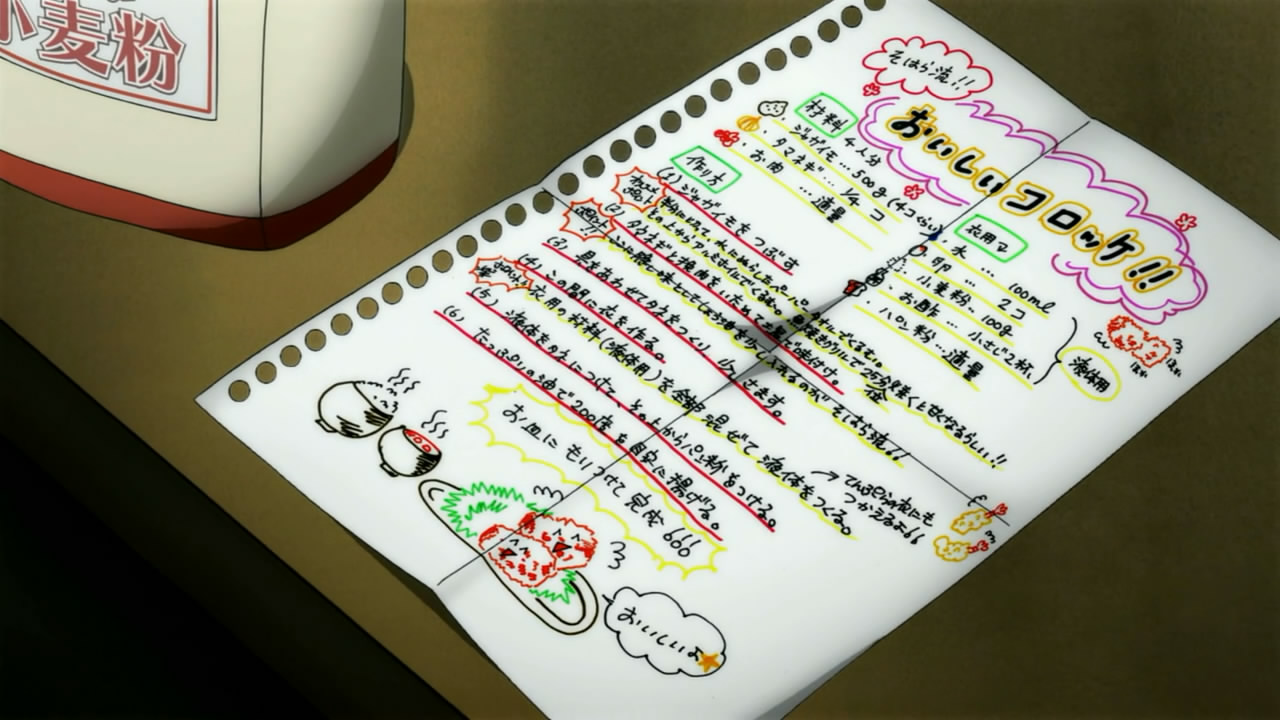 小麦粉
そはら流!!
おいしいコロッケ!!
材料 4人分
・ジャガイモ…500g(4コぐらい)
・タマネギ…1/4コ
・お肉 …適量
衣用
・水 … 100ml
・卵 … 2コ
・小麦粉…100g
・お酢…小さじ2杯
・パン粉…適量
液体用
作り方
(1) ジャガイモをつぶす
(2) タマネギと挽肉をいためて、塩で味付け。
(3) 具をあわせてタネをつくり、します。
(4) この間に衣を作る。
衣用の材料(液体用)を全部混ぜて液体をつくる。
→てんぷらの衣にも
つかえるよ!!
(5) 液体をタネにつけて、そのあからパン粉をつける。
(6) たっぷりの油で200度を目安に揚げる。
お皿にもりつけて完成!!!
おいしいよ